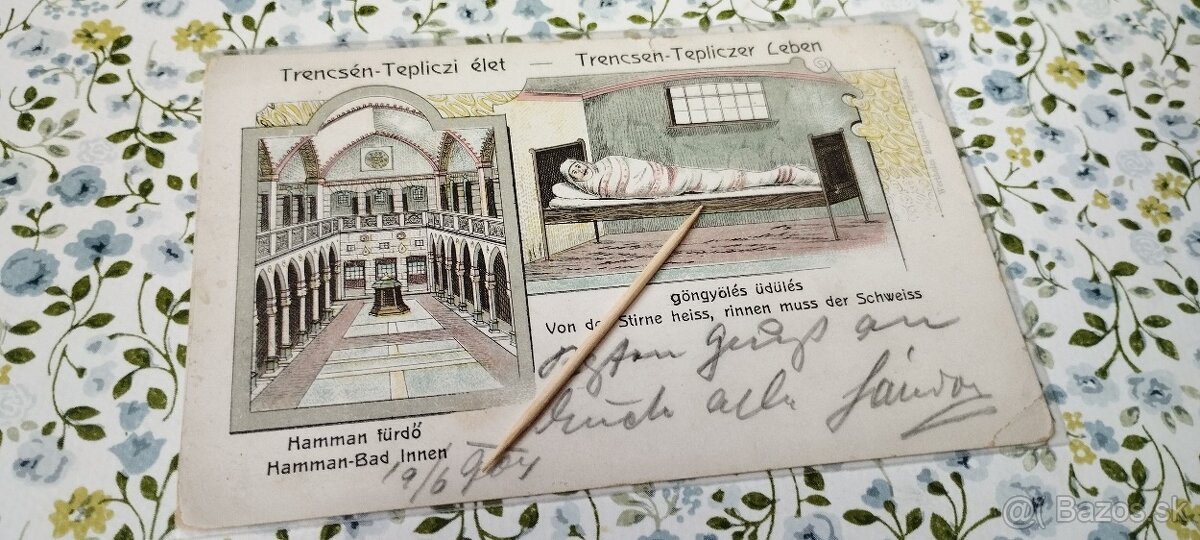 Trencsén-Tepliczi élet — Trencsen-Tepliczer Leben
göngyölés üdülés
Von der Stirne heiss, rinnen muss der Schweiss
Gruß an
Euch alle Sándor
Hamman fürdő
Hamman-Bad Innen
19/6 904
Bazos.sk